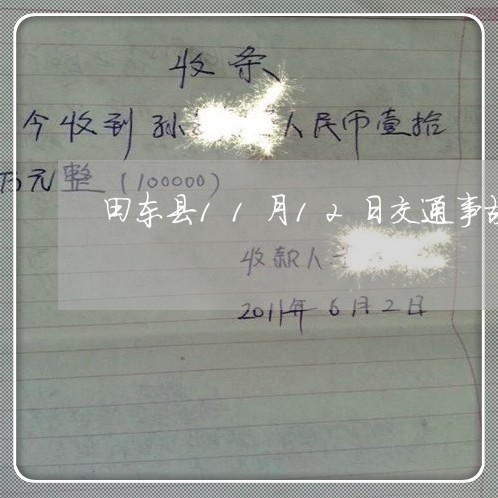 收条
今收到孙 人民币壹拾
万元整（100000）
田东县11月12日交通事故
收款人
2011年6月2日